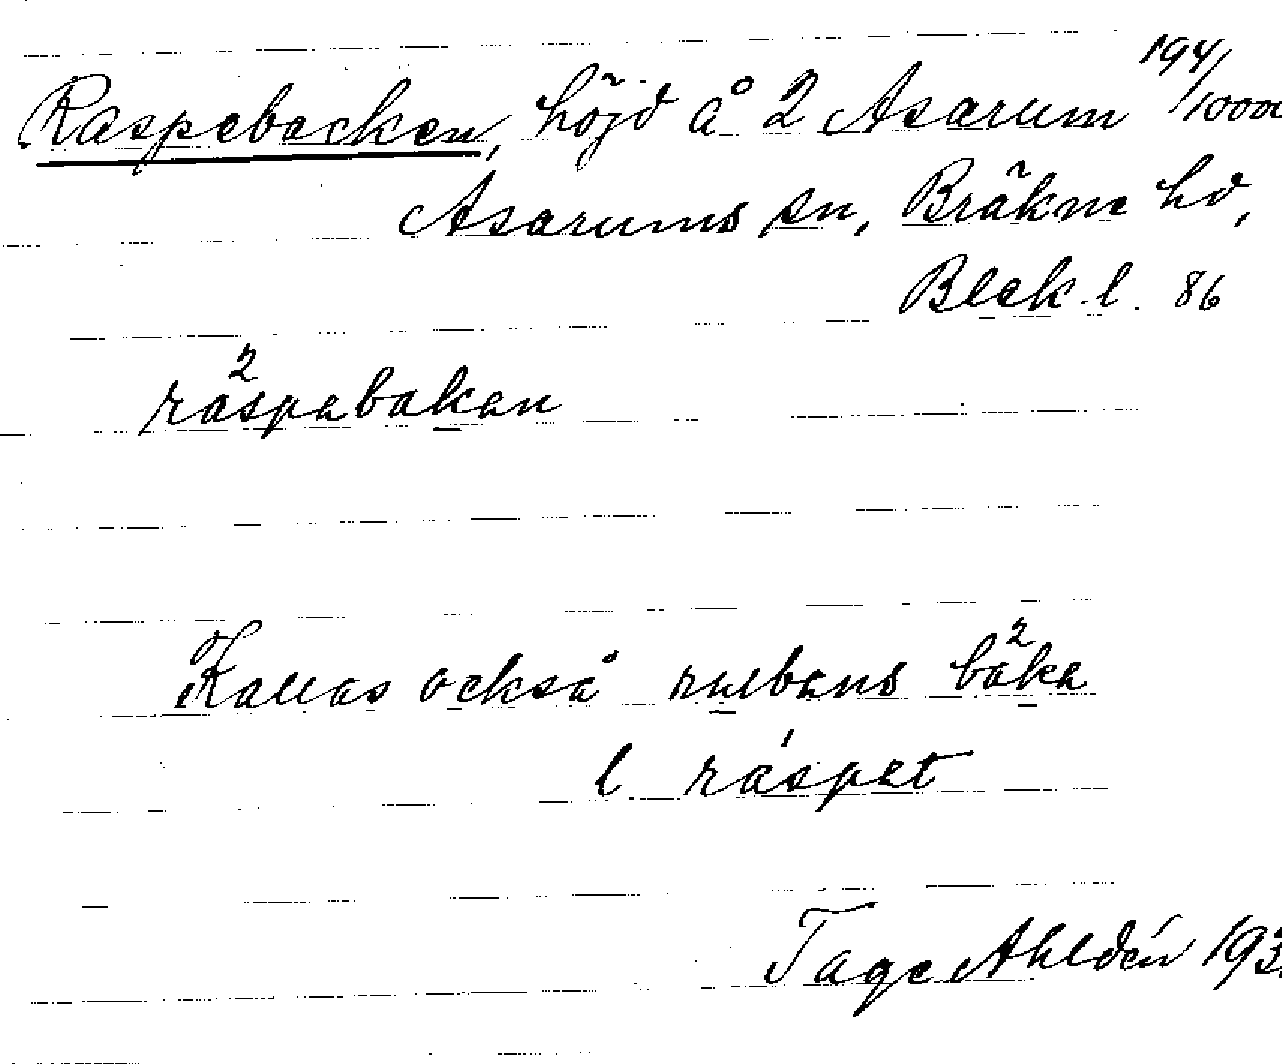 Raspebacken, höjd å 2 Asarum 194/10000
Asarums sn, Bräkne hd,
Blek. l. 86
ra²spabakan
Kallas också rulbans ba²ka
l. ra¹spat
Tage Ahldén 193